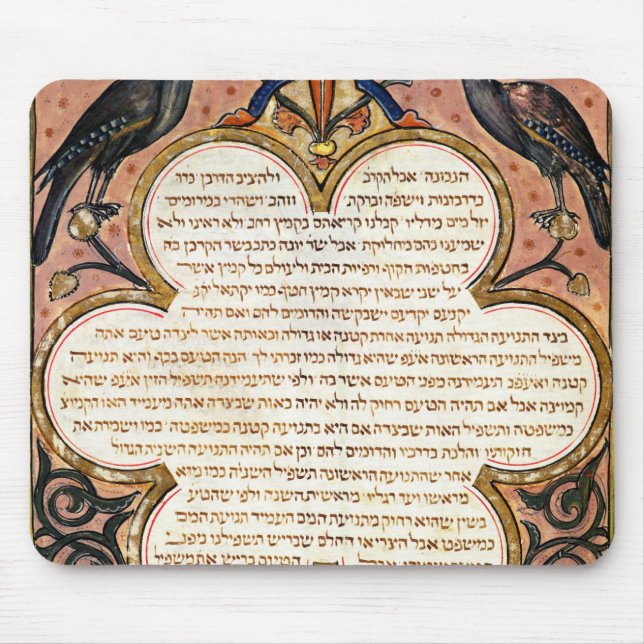 הנכונה אבל הקיב ולהציב הדרבן כדו
כדרבונות וישפה וברקת וזהב ושהדי במרומים
יזל מים מדליו קבלנו קריאתם בקמץ רחב ולא ראינו ולא
שמענו בהם מחליקת אבל שר יונה בתבבשר הקרבן בה
בחטפות הקוף ורפיות הבית ולעולם כל קמץ אשר
על שני שבאין יקרא קמץ חטף כמו יקתאל יקנ
יקנעם יקדעם ישבקשה והדומים להם ואם תהיה
כיצד התנועה הגדולה תנועה אחת קטנה או גדולה ובאותה אשר לצדה טיעם אתה
משפיל התנועה הראשונה אעפ שהיא גדולה כמו זכרתי לך הנה הטעם בכף והיא תנועה
קטנה ואעפכ תעמידנה מפני הטעם אשר בה ולפי שתעמידנה תשפיל הזין אעפ שהיא
קמוצה אבל אם תהיה הטעם רחוק לה ולא יהיה באות שבצדה אתה מעמיד האו הקמוצ
כמשפטה ותשפיל האות שבצדה אם היא בתנועה קטנה כמו ושמרת את
חוקותיו והלכת בדרכיו והדומים להם וכן אם תהיה התנועה השנית הגדול
אחר שהתנועה הראשונה תשפיל השניה כמו מוא
מראשו ועד רגליו מראשית השנה ולפי שהטע
בשין שהוא רחוק מתנועת המם העמיד תנועת המם
כמשפט אבל היצרי או החלם שבריש תשפילנו מפנ
הטעם בריש את משפיל